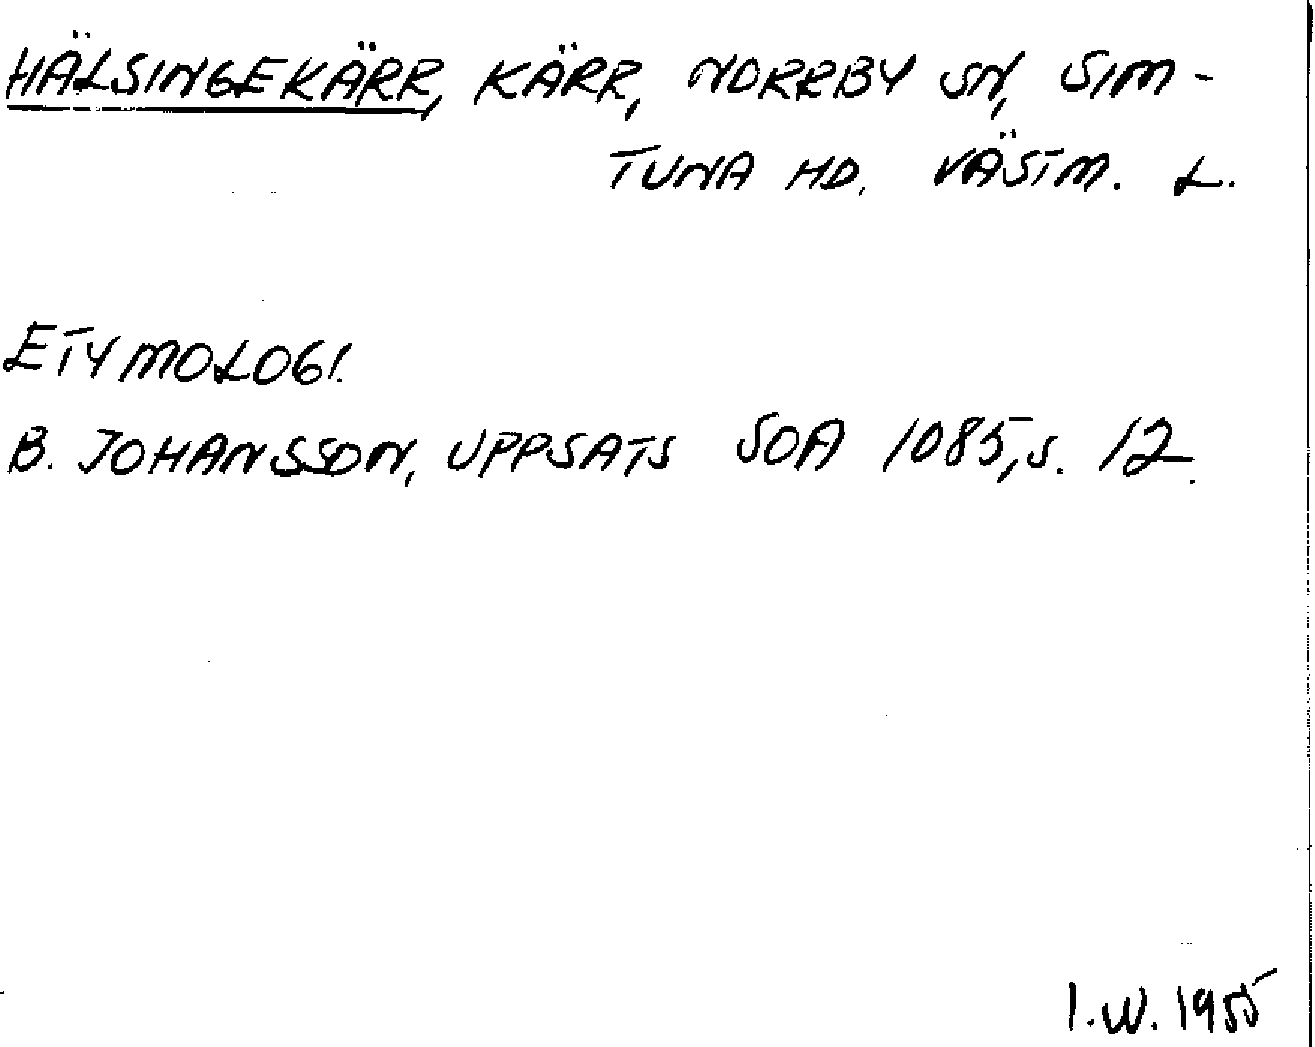 HÄLSINGEKÄRR, KÄRR, NORRBY SN, SIM-
TUNA HD. VÄSTM. L.
ETYMOLOGI.
B. JOHANSSON, UPPSATS SOA 1085, S. 12.
I.W. 1955